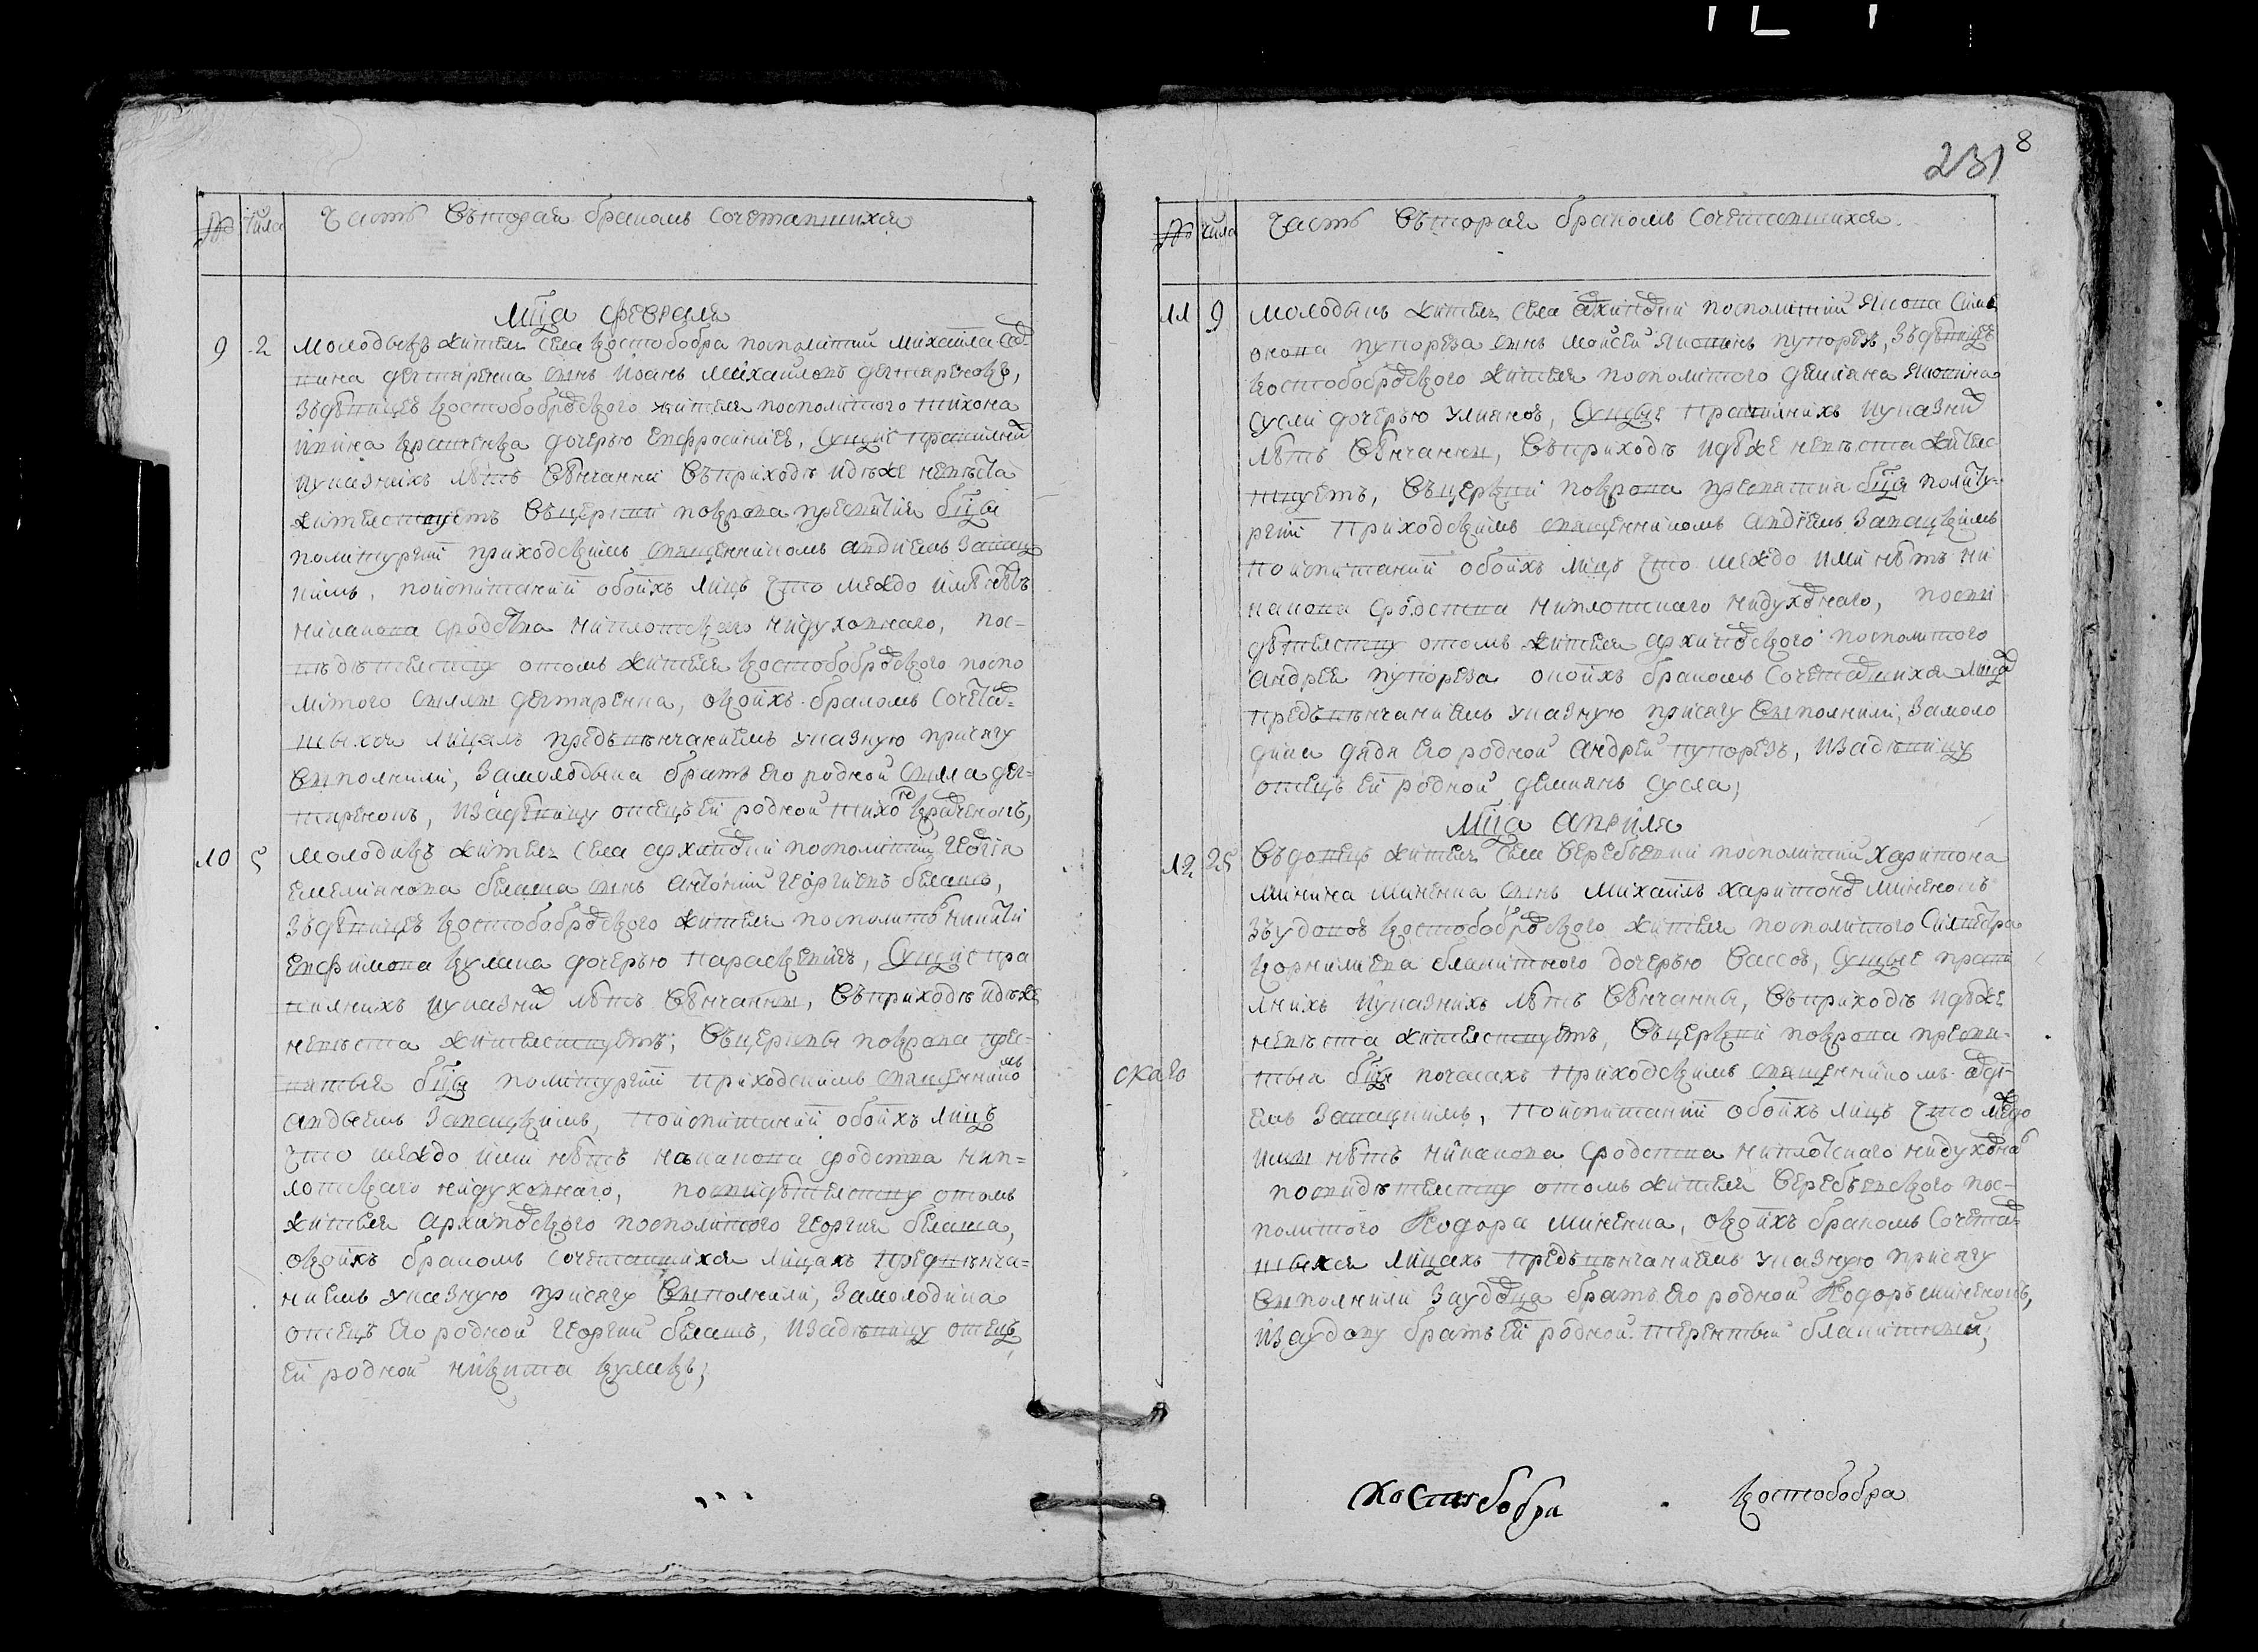 № Числа Часть Вторая браком сочетавшихся
Мца февраля
9 2 Молодыкъ житель села костобобра посполитий Михаила Сав-
вина дегтяренка сынъ Иванъ Михайловъ дегтяренокъ,
Зъдѣвицеѣ костобобровского жителя посполитого тихона
дочерью Евфросиниеѣ, Сущие правилний
иуказнихъ лѣтъ Вѣнчанни Въприходѣ идѣже невѣста
жителствуетъ Въцеркви покрова пресвятия бцы
политургии приходскимъ священникомъ авдиемъ Запац
кимъ, поиспитании обоихъ лицъ что междо ими нѣтъ
никакова сродства ниплотскаго нидуховнаго, пос-
вѣдителству отомъ жителя костобобровского поспо
литого силы дегтяренка, окоихъ браком сочетав-
шыхся лицахъ предъвѣнчаниемъ указную присягу
Выполнили, Замолодыка братъ его родной сила дег-
тяренокъ, Изадѣвицу отецъ ей родной тихонъ
10 5 Молодикъ житель села архиповки посполитий Георгия
Емелиянова белаша сынъ Антоний Георгиевъ белашъ,
Зъдѣвицеѣ костобобровского жителя посполитого никити
Евфимова кулака дочерью Параскевиеѣ, Сущие пра
вилнихъ иуказний лѣтъ Вѣнчанны, Въприходѣ идѣже
невѣста жителствуетъ, Въцерквы покрова прес-
вятыя бцы политургии приходскимъ священникомъ
авдыемъ Запацкимъ, поиспитании обоихъ лицъ
что междо ими нѣтъ никакова сродства нип-
лотскаго нидуховнаго, посвидѣтелству отомъ
жителя Архиповского посполитого Георгия белаша,
окоихъ браком сочетавшихся лицахъ предвѣнча-
ниемъ указную присягу Выполнили, Замолодика
отецъ его родной Георгий белашъ, Изадѣвицу отецъ
ей родной никита кулакъ;
231 8
№ Числа Часть Вторая браком сочетавшихся
11 9 Молодыкъ житель села посполитий Якова Сим
онова пупореза сынъ Моисей Яковинъ пупорезъ, Зъдѣвицеѣ
костобобровского жителя посполитого демияна Яковина
Сусли дочерью Улияноѣ, Сущые правилнихъ иуказний
лѣтъ Вѣнчанны, Въприходѣ идѣже невѣста жител
ствуетъ, Въцеркви покрова пресвятия бцы политу-
ргии приходскимъ священникомъ авдиемъ Запацкимъ
поиспитании обоихъ лицъ что междо ими нѣтъ ни
какова сродства ниплотскаго нидуховнаго, посви
дѣтелству отомъ жителя архиповского посполитого
Андрея пупореза окоихъ браком сочетавшихся лицахъ
предъвѣнчаниемъ указную присягу Выполнили, Замоло
дика дядя его родной Андрей пупорезъ, Изадѣвицу
отецъ ей родной демиянъ сусла;
Мца априля
12 25 Въдовецъ житель села посполитий харитона
Минина миненка сынъ Михаилъ харитоновъ миненокъ
Зъудовоѣ костобобровского жителя посполитого Силвестра
Корнилиева блакитного дочерью Вассоѣ, Сущые прави
лнихъ иуказнихъ лѣтъ Вѣнчанны, Въприходѣ идѣже
невѣста жителствуетъ, Въцеркви покрова пресвя-
скаго тыя бцы почасахъ приходскимъ священникомъ авди-
емъ Запацкимъ, поиспитании обоихъ лицъ что междо
имы нѣтъ никакова сродства ниплотскаго нидуховна
посвидѣтелству отомъ жителя пос-
политого Феодора миненка, окоихъ браком сочетав-
шыхся лицахъ предъвѣнчаниемъ указную присягу
Выполнили Заудовца братъ его родной Феодоръ миненокъ,
Изаудову братъ ей родной терентый блакитный;
костобобра костобобра